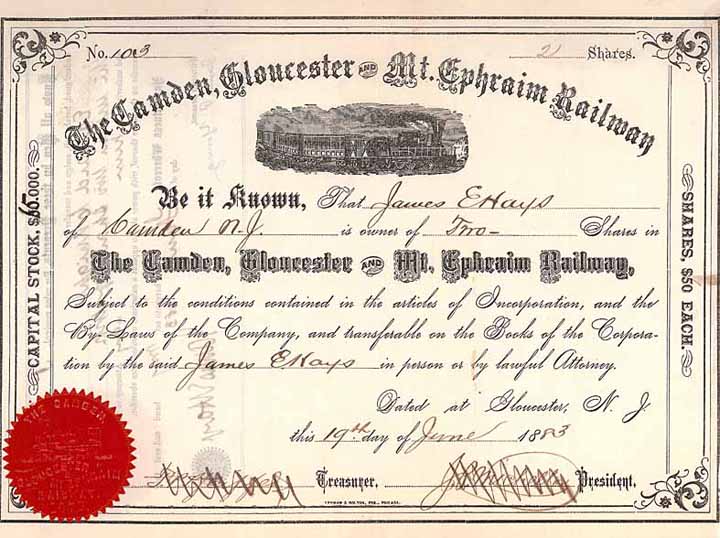 No. 103 2 Shares.
The Camden, Gloucester AND Mt. Ephraim Railway
Be it Known, That James E Hays
of Camden N.J. is owner of Two- Shares in
The Camden, Gloucester AND Mt. Ephraim Railway,
Subject to the conditions contained in the articles of Incorporation, and the
By-Laws of the Company, and transferable on the Books of the Corpora-
tion by the said James E Hays in person or by lawful Attorney.
Dated at Gloucester, N. J.
this 19th day of June 1883
Treasurer. President.
CAPITAL STOCK, $65.000.
SHARES, $50 EACH.
THE CAMDEN
GLOUCESTER AND